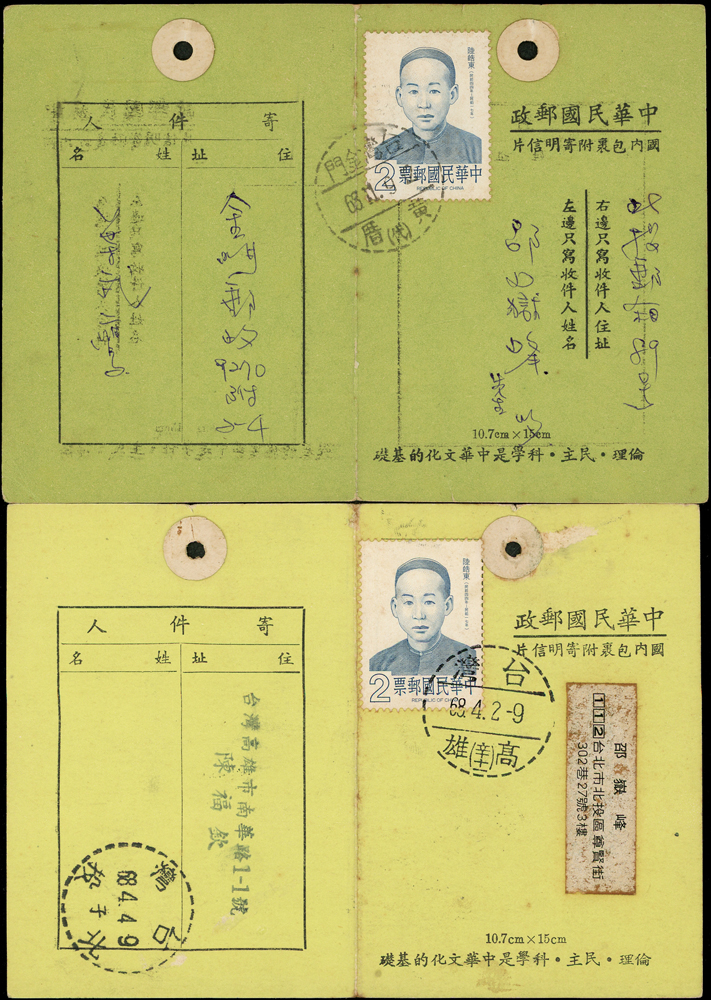 中華民國郵政
國內包裹附寄明信片
陸皓東
2 中華民國郵票
REPUBLIC OF CHINA
台灣金門
68.
黃厝
右邊只寫收件人住址
左邊只寫收件人姓名
邵嶽峰
先生
寄件人
住址
姓名
金門郵政
9270
附
5-4
10.7cm×15cm
倫理・民主・科學是中華文化的基礎
中華民國郵政
國內包裹附寄明信片
陸皓東
2 中華民國郵票
REPUBLIC OF CHINA
台灣
68.4.2-9
高雄
112台北市北投區尊賢街
302巷27號3樓
邵嶽峰
寄件人
住址
姓名
台灣高雄市南華路1-1號
陳福欽
台灣
68.4.4.9
北投
10.7cm×15cm
倫理・民主・科學是中華文化的基礎